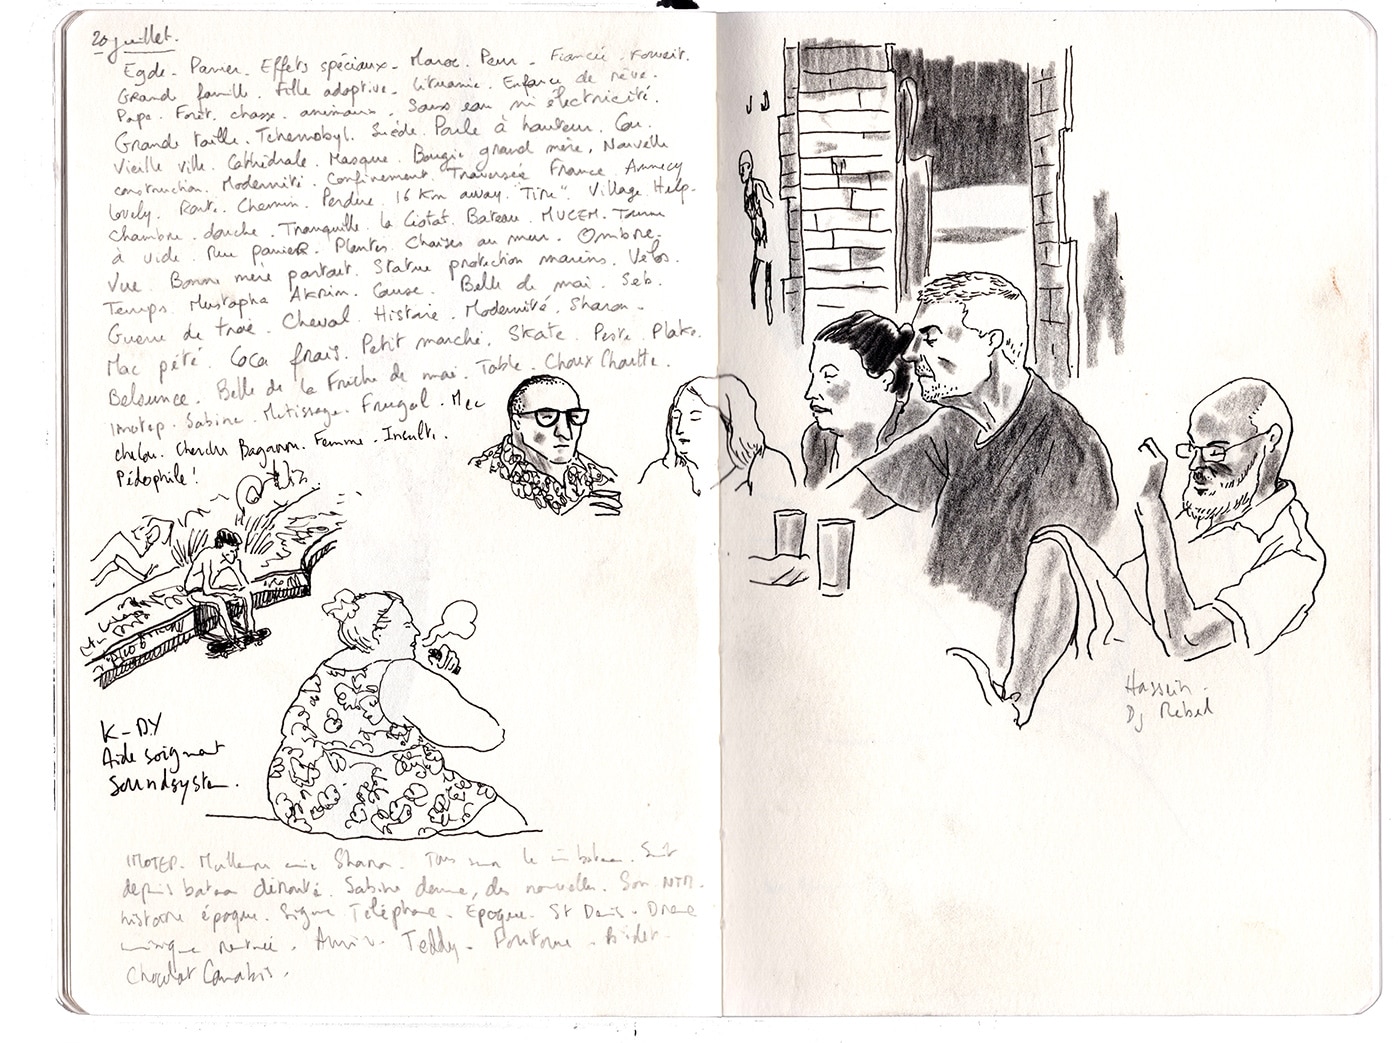 20 juillet.
Egde. Panier. Effets spéciaux. Maroc. Peur. Fiancée. Koweit.
Grand famille. Fille adoptive. Lituanie. Enfance de rêve.
Papa. Forêt. chasse. animaux. Sans eau ni électricité.
Grande taille. Tchernobyl. Suède. Parle à hauteur. Cou.
Vieille ville. Cathédrale. Masque. Bougie grand mère. Nouvelle
construction. Modernité. Confinement. Traversée France. Annecy
Lovely. Route. Chemin. Perdue. 16 Km away. "Time". Village. Help.
Chambre. douche. Tranquille. la Ciotat. Bateau. MUCEM. Tourne
à vide. Rue panier. Plantes. Chaises au mur. Ombre.
Vue. Bonne mère partout. Statue protection marins. Vélos.
Temps. Mustapha Akrim. Cause. Belle de mai. Seb.
Guerre de troie. Cheval. Histoire. Modernité. Sharon.
Mac pété. Coca frais. Petit marché. Skate. Peste. Plake.
Belsunce. Belle de la Friche de mai. Table. Choux Chou
Imotep. Sabine. Métissage. Frugal. Mec
chelou. Cherche Baganon. Femme. Inculte.
Pédophile!
K-DY
Aide soignant
Soundsystem.
IMOTEP. Sharon. Tous sur le bateau. Suit
depuis bateau dérouté. Sabine donne, des nouvelles. Son NTM.
histoire époque. Signe Téléphone. Epoque. St Denis. Drame
Teddy.
Chocolat Canabis.
J D
Hassein.
Dj Rebel